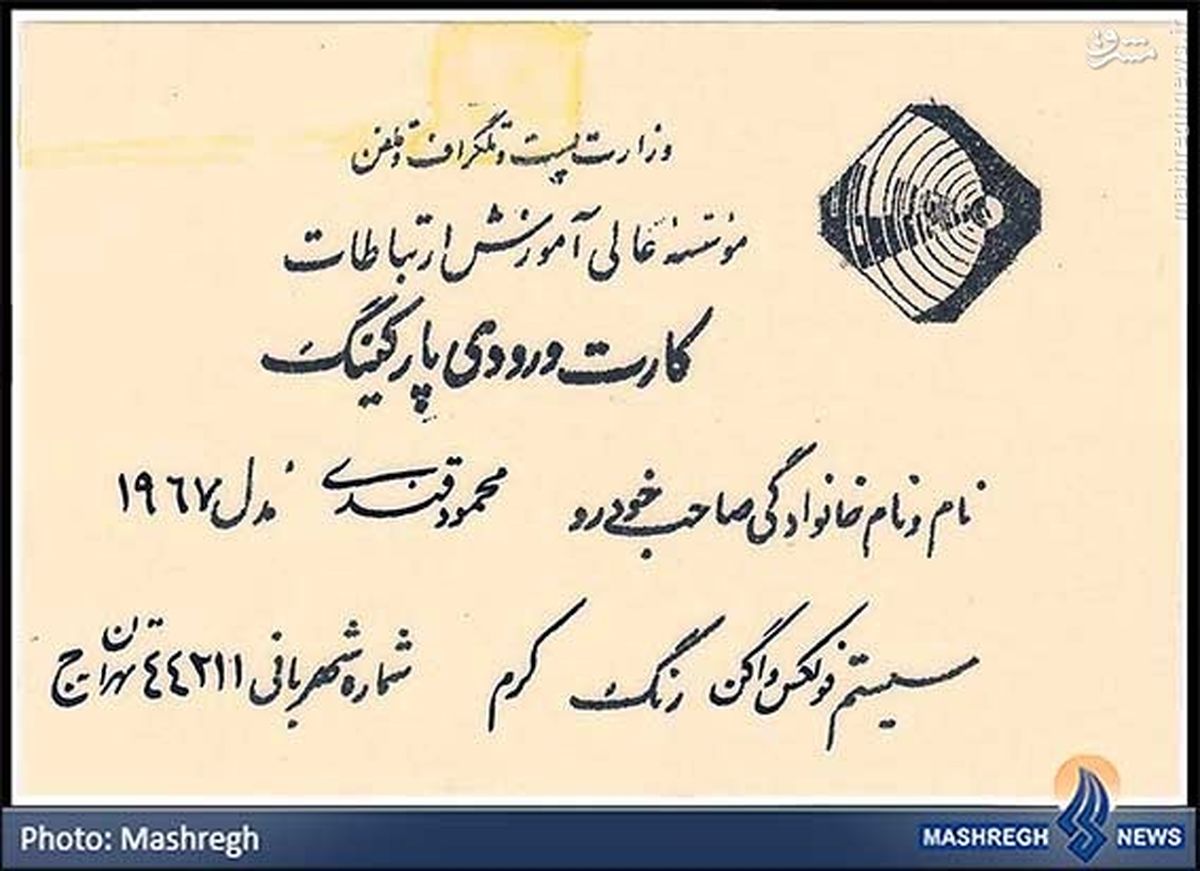 مشرق
mashreghnews.ir
وزارت پست و تلگراف و تلفن
مؤسسهٔ عالی آموزش ارتباطات
کارت ورودی پارکینگ
نام و نام خانوادگی صاحب خودرو محمود قندی مدل ۱۹٦۷
سیستم فولکس واگن رنگ کرم شماره شهربانی ٤٤۲۱۱ تهران ج
Photo: Mashregh
MASHREGH NEWS